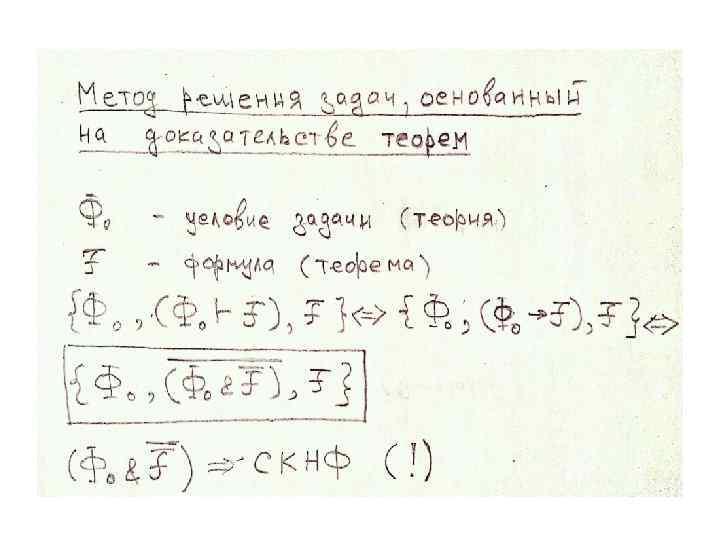 Метод решения задач, основанный
на доказательстве теорем
Ф₀ - условие задачи (теория)
F - формула (теорема)
{Ф₀, (Ф₀ ⊢ F), F} ⇔ {Ф₀, (Ф₀ → F), F} ⇔
{Ф₀, (\overline{Ф₀ & \overline{F}}), F}
(Ф₀ & \overline{F}) ⇒ СКНФ (!)